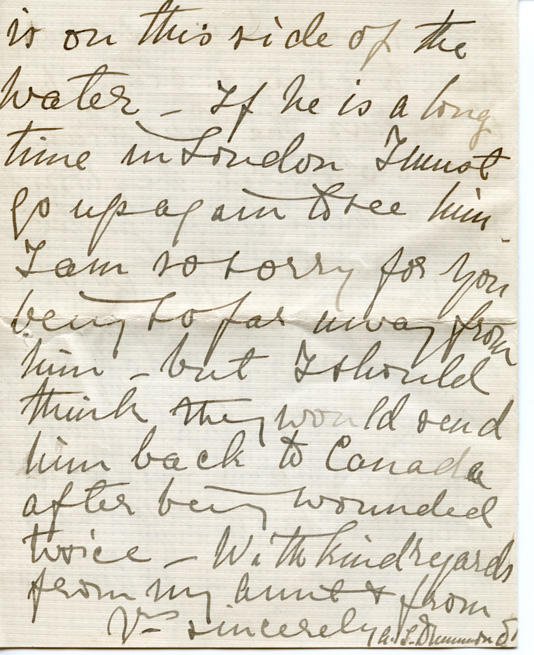 is on this side of the
water – If he is a long
time in London I must
go up again to see him.
I am so sorry for you
being so far away from
him – but I should
think they would send
him back to Canada
after being wounded
twice – With kind regards
from my aunt & from
Yrs sincerely A. L. Drummond